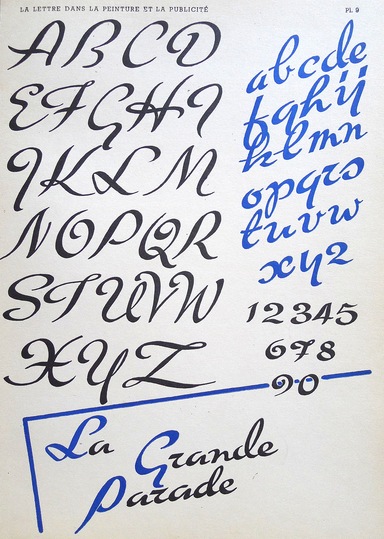 LA LETTRE DANS LA PEINTURE ET LA PUBLICITÉ
Pl. 9
ABCD
EFGHI
JKLM
NOPQR
STUVW
XYZ
abcde
fghij
klmn
opqrs
tuvw
xyz
12345
678
90
La Grande
Parade